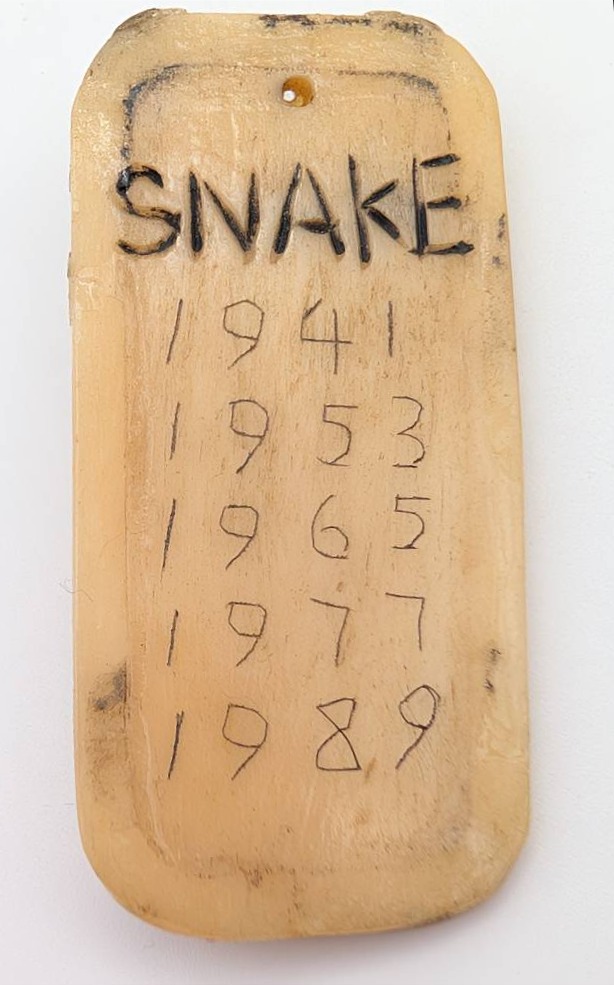 SNAKE
1941
1953
1965
1977
1989